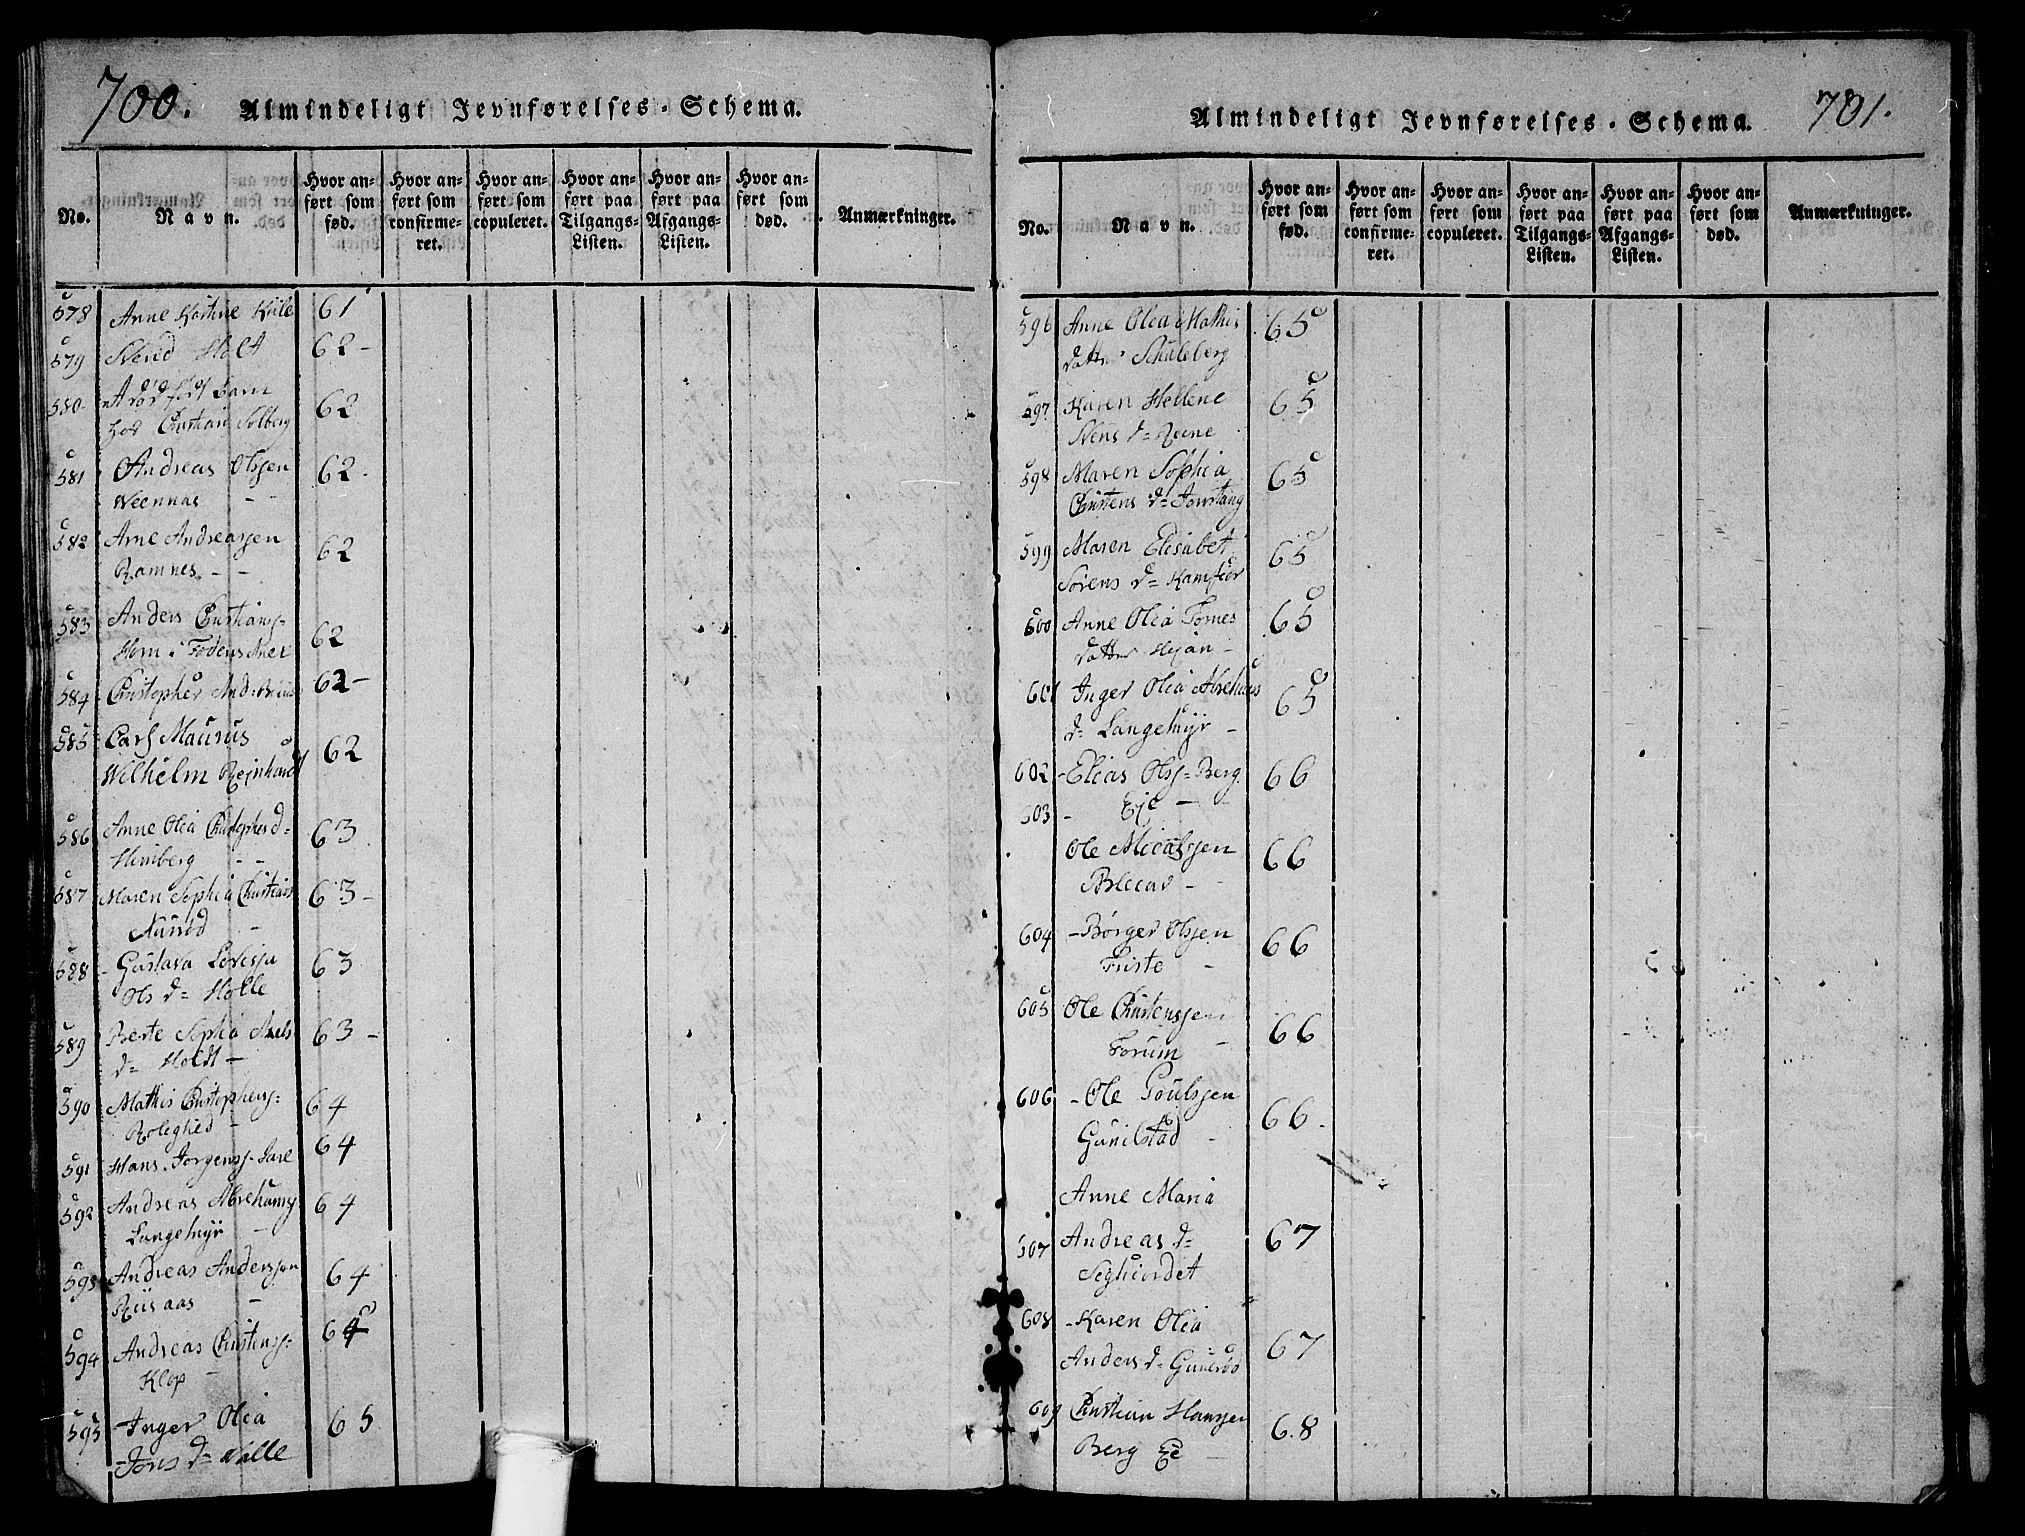 700.
Almindeligt Jevnførelses-Schema.
No.
Navn.
Hvor anført som fød.
Hvor anført som confirmeret.
Hvor anført som copuleret.
Hvor anført paa Tilgangs-Listen.
Hvor anført paa Afgangs-Listen.
Hvor anført som død.
Anmærkninger.
578 Anne Kistine Kiile 61
579 Svend Holt 62-
580 Et død født barn
hos Christian Solberg 62
581 Andreas Olssen 62.
Weennas
582 Arne Andreassen 62
Ramnes
583 Anders Christians-
Horn i Fodens Aner 62
584 Christopher And: 62-
585 Carl Maurus
Wilhelm Rejnhardt 62
586 Anne Olea Christophers d= 63
Himberg
587 Maren Sophia Christians 63-
588 Gustava Lovisja 63
Ols d= Holle
589 Berte Sophia Axels 63-
d= Holdt
590 Mathis Christophers:= 64
Roleghed
591 Hans Jørgens:- Sare 64
592 Andreas Abrehams 64
Langemyr
593 Andreas Anderssen 64
Riisaas
594 Andreas Christens:= 64
Klop
595 Inger Olea 65
Jens d= Valle
701.
Almindeligt Jevnførelses-Schema.
No.
Navn.
Hvor anført som fød.
Hvor anført som confirmeret.
Hvor anført som copuleret.
Hvor anført paa Tilgangs-Listen.
Hvor anført paa Afgangs-Listen.
Hvor anført som død.
Anmærkninger.
596 Anne Olea Mathis 65
datter Schuleberg
597 Karen Hellene 65
Svens d= Reene
598 Maren Sophia 65
Christens d= Jonstang
599 Maren Elisabet 65
Sørens d= Kamfior
600 Anne Olea Tornes 65
datter Hejan
601 Inger Olea Abrehams 65
d= Langemyr
602 Elias Ols:= Berg 66
603 Eje
Ole Micalsen 66
604 Børger Olssen 66
Friste
605 Ole Christenssen 66
Forum
606 Ole Poulssen 66.
Gunilstad
Anne Maria
607 Andreas d= 67
608 Karen Olea
Anders d= Gunerød 67
609 Christian Hanssen 68
Berg Eè